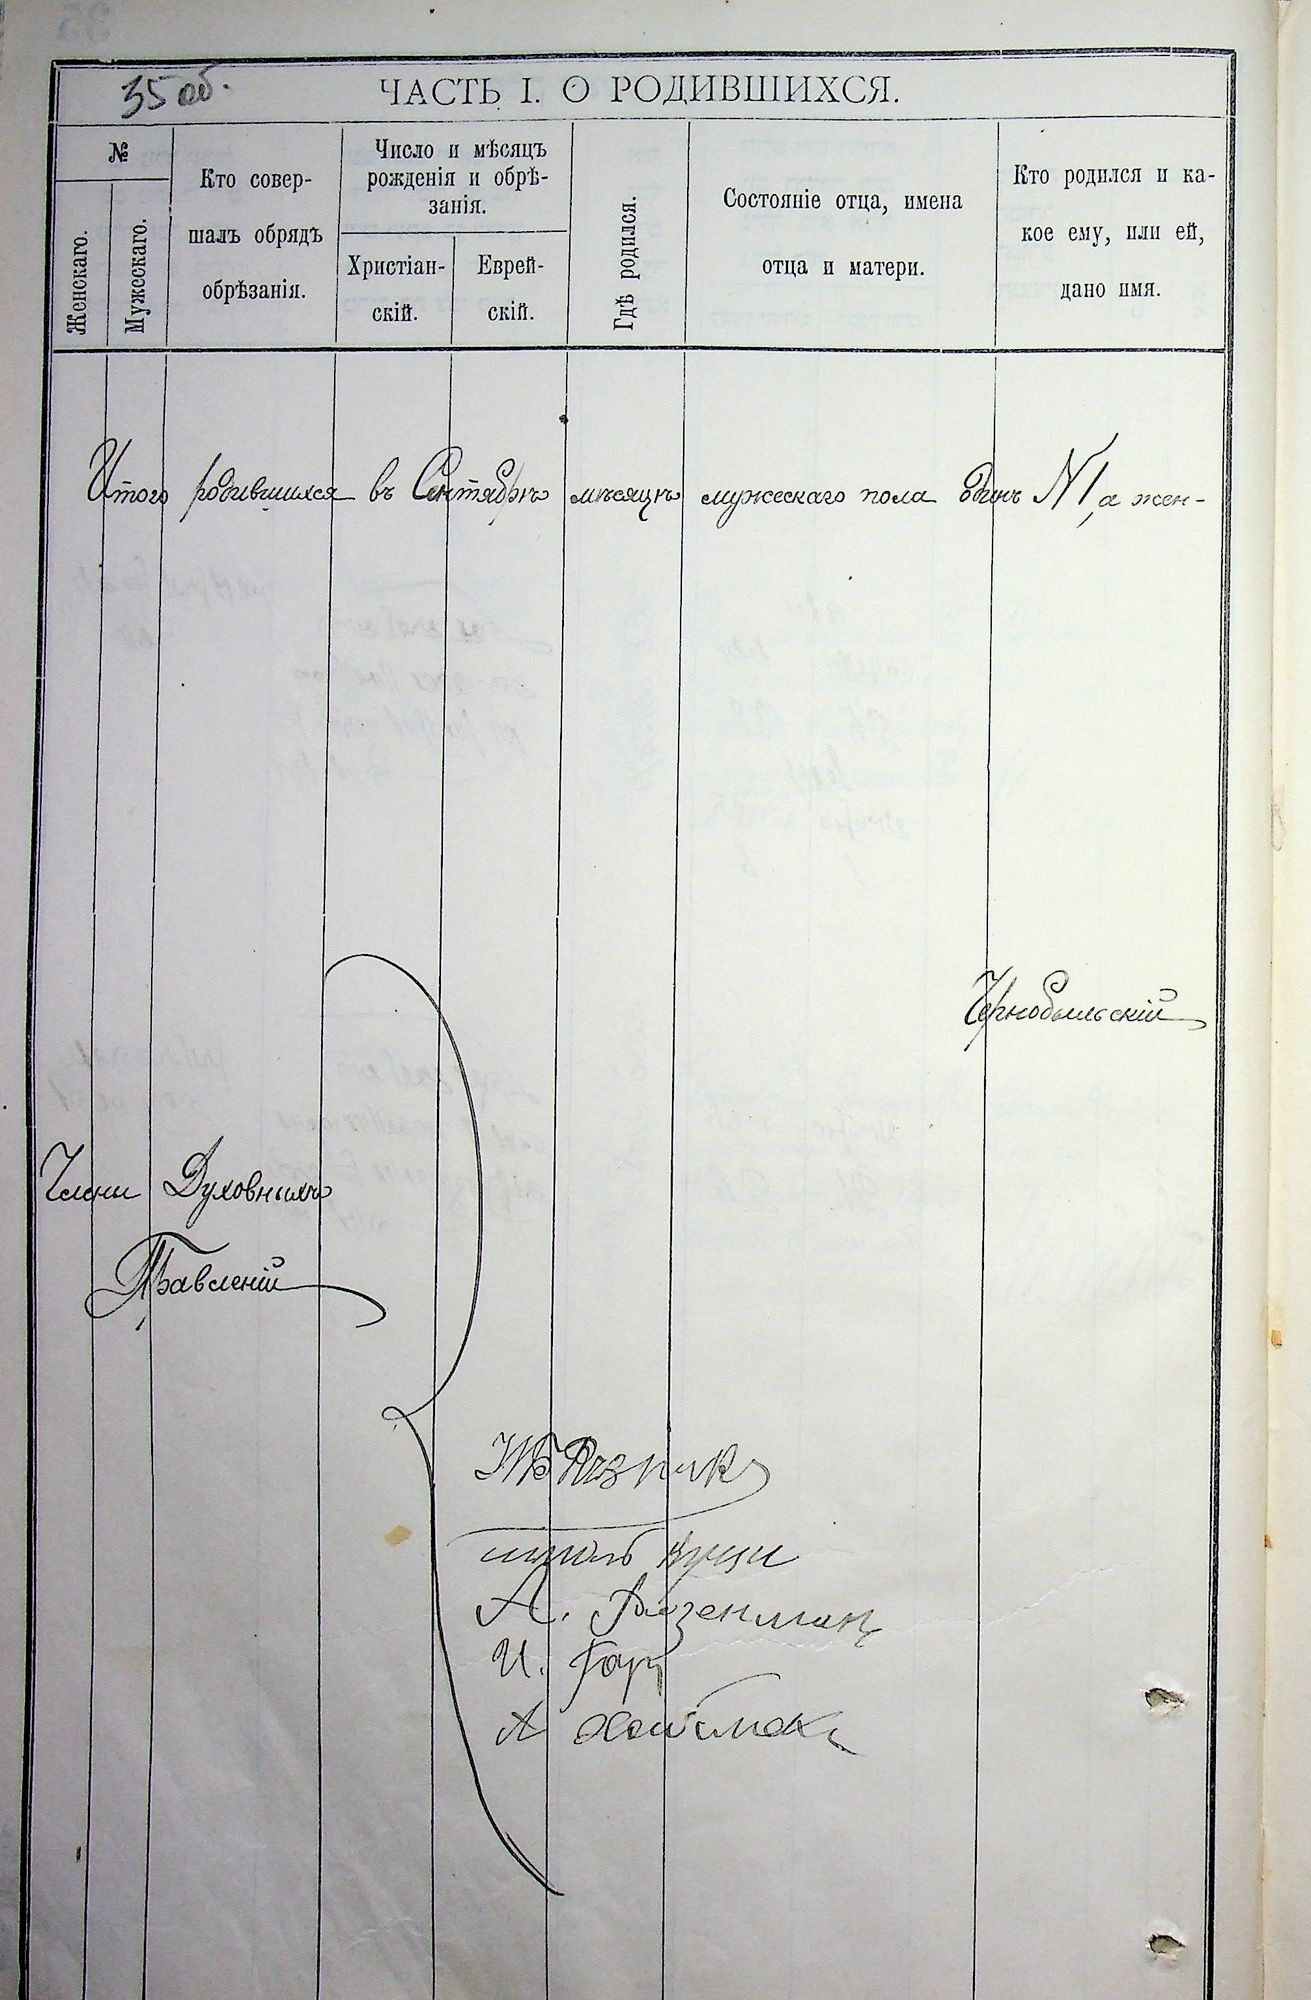 35 об.
ЧАСТЬ I. О РОДИВШИХСЯ.
№
Женскаго.
Мужескаго.
Кто совер-
шалъ обрядъ
обрѣзанія.
Число и мѣсяцъ
рожденія и обрѣ-
занія.
Христіан-
скій.
Еврей-
скій.
Гдѣ родился.
Состояніе отца, имена
отца и матери.
Кто родился и ка-
кое ему, или ей,
дано имя.
Итого родившихся въ Сентябрѣ мѣсяцѣ мужескаго пола одинъ № 1, а жен-
Чернобыльскій
Члены Духовныхъ
Правленій
Резникъ
А. Розенман
И. Гарц
А